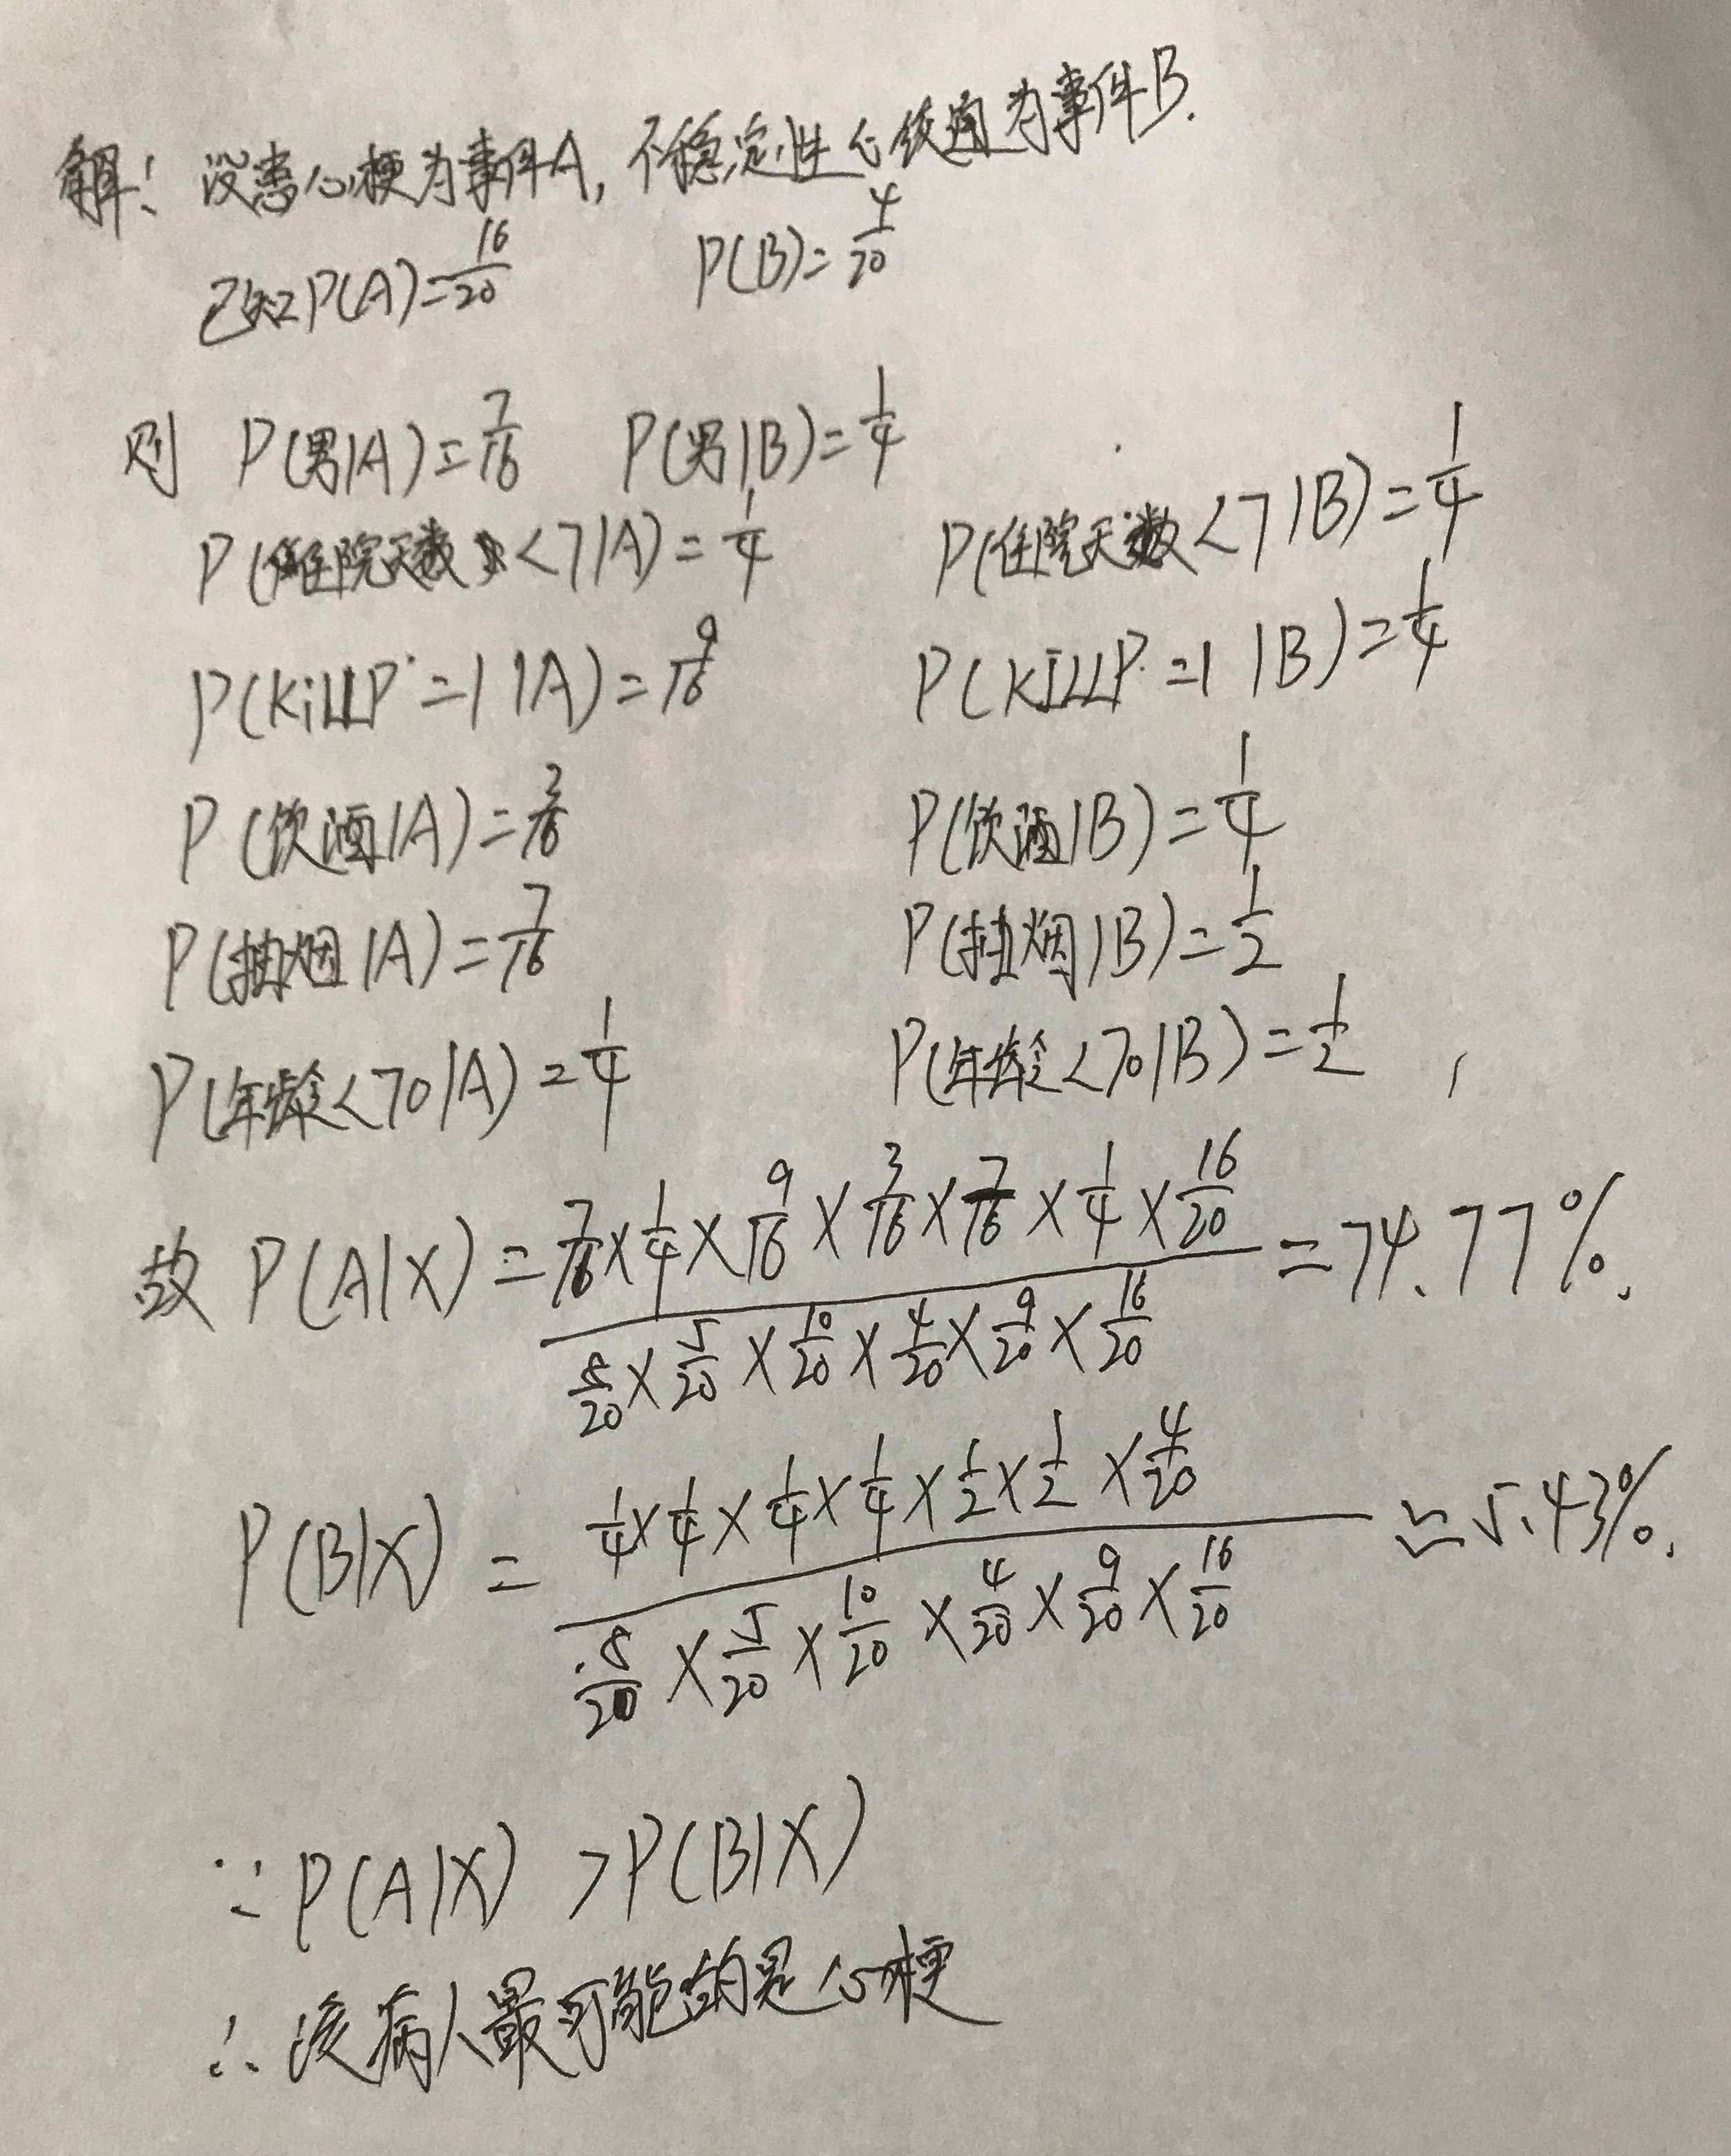 解：设患心梗为事件A，不稳定性心绞痛为事件B.
已知P(A)=16/20 P(B)=4/20
则 P(男|A)=7/16 P(男|B)=1/4
P(住院天数<7|A)=1/4 P(住院天数<7|B)=1/4
P(KiLLP=1|A)=9/16 P(KiLLP=1|B)=1/4
P(饮酒|A)=3/16 P(饮酒|B)=1/4
P(抽烟|A)=7/16 P(抽烟|B)=1/2
P(年龄<70|A)=1/4 P(年龄<70|B)=1/2
故 P(A|X)=(7/16×1/4×9/16×3/16×7/16×1/4×16/20)/(8/20×5/20×10/20×4/20×9/20×16/20)=74.77%.
P(B|X)=(1/4×1/4×1/4×1/4×1/2×1/2×4/20)/(8/20×5/20×10/20×4/20×9/20×16/20)≈5.43%.
∵P(A|X)>P(B|X)
∴该病人最可能的是心梗